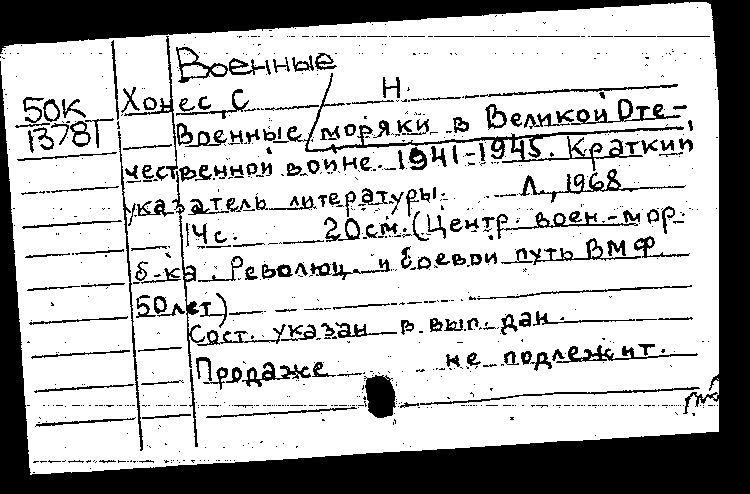 Военные
50К
13781
Хонес, С Н.
Военные моряки в Великой Оте-
чественной войне. 1941-1945. Краткий
указатель литературы. Л., 1968.
14с. 20см. (Центр. воен.-мор.
б-ка. Революц. и боевой путь ВМФ.
50 лет)
Сост. указан в вып. дан.
Продаже не подлежит.